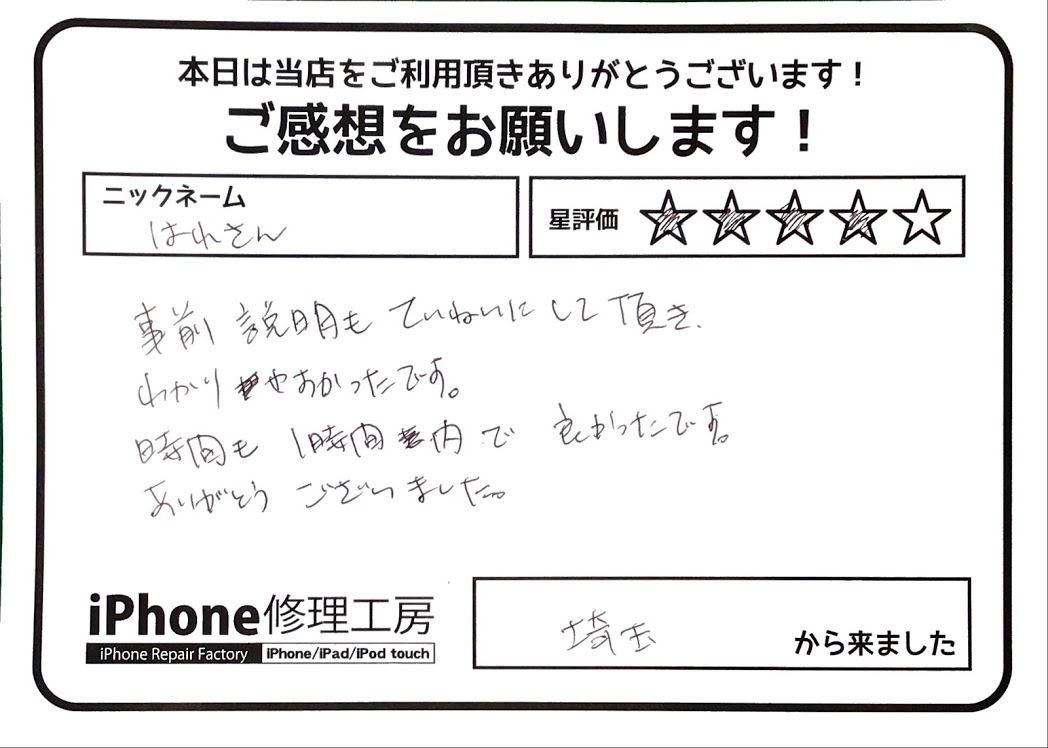 本日は当店をご利用頂きありがとうございます！
ご感想をお願いします！
ニックネーム
はれさん
星評価
事前説明もていねいにして頂き、
わかりやすかったです。
時間も1時間内で良かったです。
ありがとうございました。
iPhone修理工房
iPhone Repair Factory iPhone/iPad/iPod touch
埼玉 から来ました